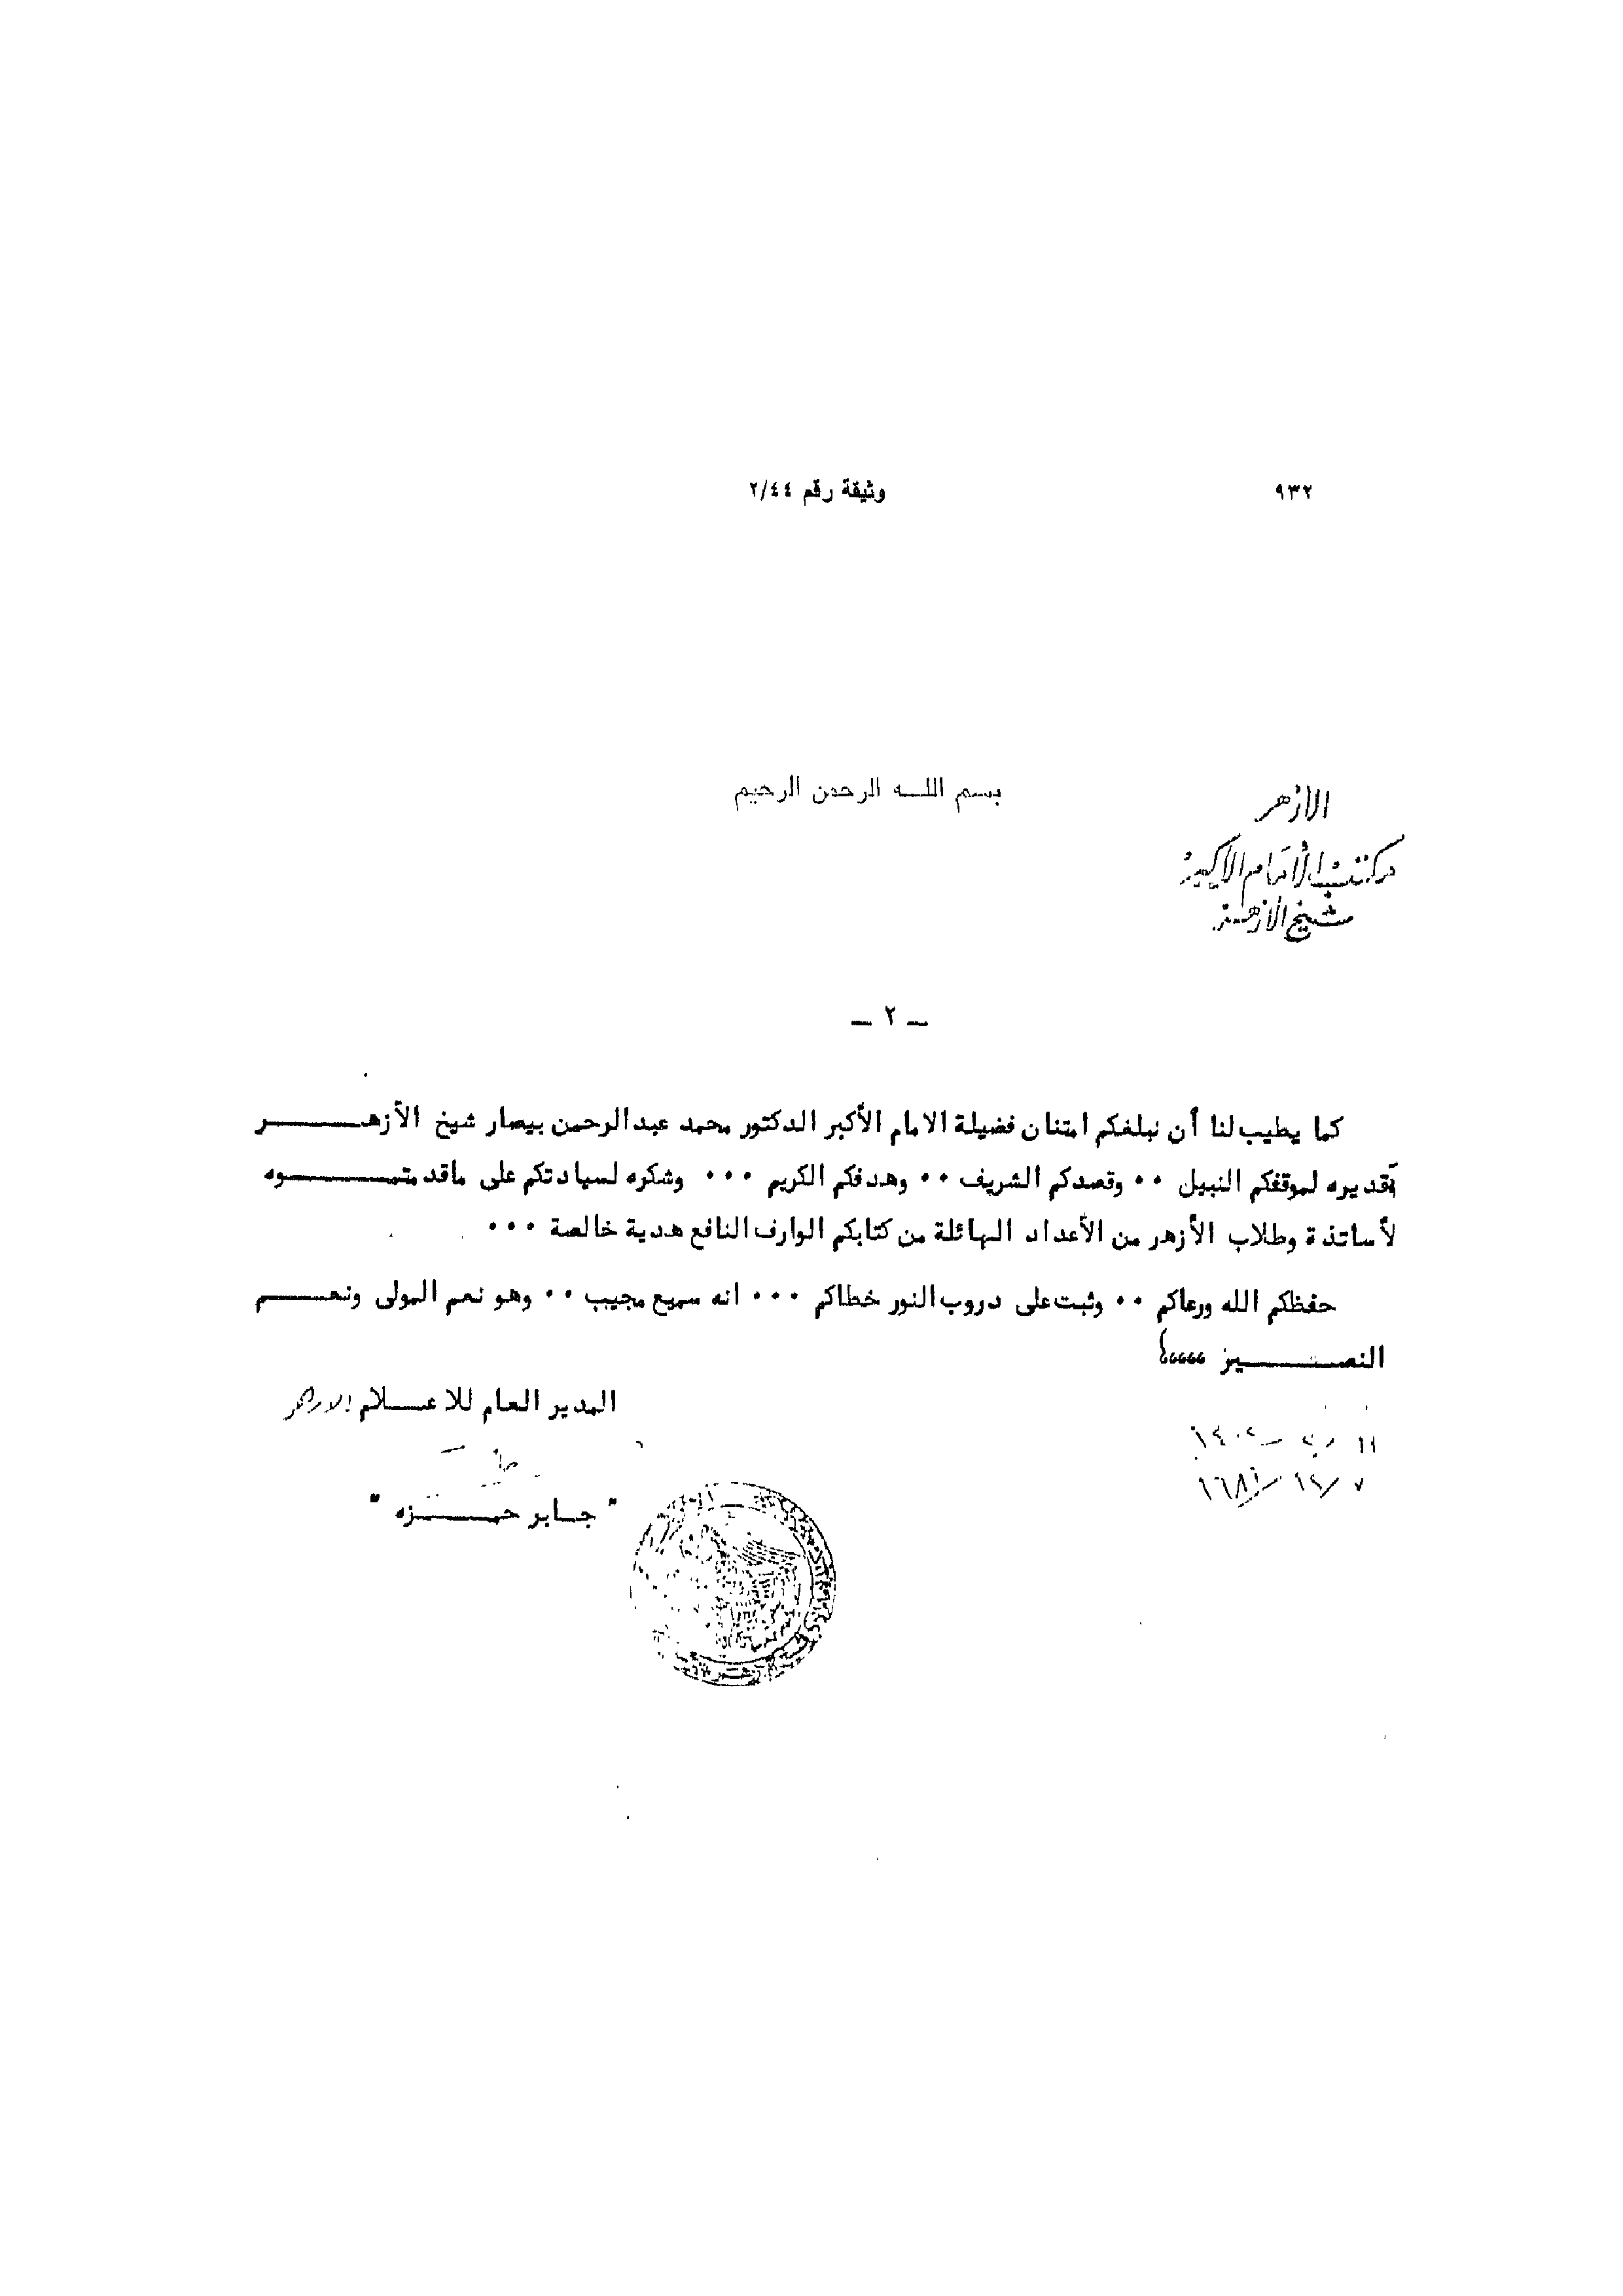 ٩٣٢
وثيقة رقم ٢/٤٤
بسم اللـــه الرحمن الرحيم
الأزهر
مكتب الإمام الأكبر
شيخ الأزهر
ـ ٢ ـ
كما يطيب لنا أن نبلغكم امتنان فضيلة الامام الأكبر الدكتور محمد عبدالرحمن بيصار شيخ الأزهـــــــر
تقديره لموقفكم النبيل ٠٠ وقصدكم الشريف ٠٠ وهدفكم الكريم ٠٠٠ وشكره لسيادتكم على ماقدمتمـــــــوه
لأساتذة وطلاب الأزهر من الأعداد الهائلة من كتابكم الوارف النافع هدية خالصة ٠٠٠
حفظكم الله ورعاكم ٠٠ وثبت على دروب النور خطاكم ٠٠٠ انه سميع مجيب ٠٠ وهو نعم المولى ونعـــــــم
النصـــــــير ،،،،،
المدير العام للاعـــلام الازهر
" جـابر حمـــــزه "